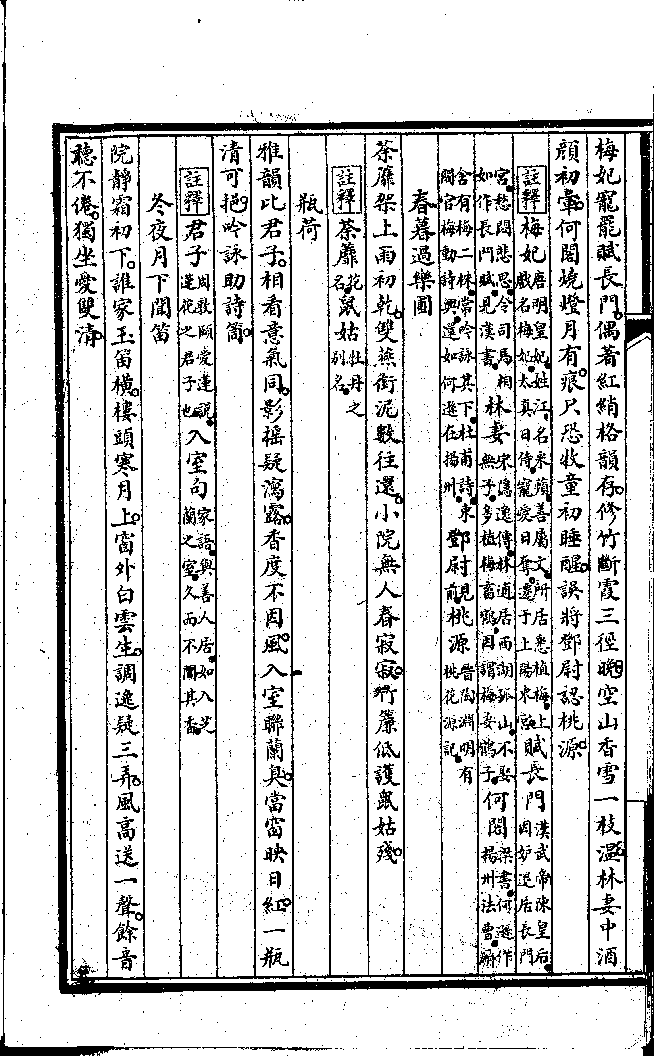 梅妃寵罷賦長門。偶著紅綃格韻存。修竹斷霞三徑晚。空山香雪一枝溫。林妻中酒
顏初暈。何閣燒燈月有痕。只恐牧童初睡醒。誤將鄧尉認桃源。
註釋 梅妃 唐明皇妃。姓江。名采蘋。善屬文。所居悉植梅。上戲名梅妃。太真日侍寵疾日奪。遷于上陽東宮。 賦長門 漢武帝陳皇后因妒退居長門
宮。愁悶悲思。令司馬相如作長門賦。見漢書。 林妻 宋隱逸傳。林逋居西湖孤山。不娶無子。多植梅畜鶴。因謂梅妻鶴子。 何閣 梁書。何遜作揚州法曹。廨
舍有梅二株。常吟詠其下。杜甫詩。東閣官梅動詩興。還如何遜在揚州。 鄧尉 見前 桃源 晉陶淵明有桃花源記。
春暮過樂圃
荼蘼架上雨初乾。雙燕銜泥數往還。小院無人春寂寂。竹簾低護鼠姑殘。
註釋 荼蘼 花名 鼠姑 牡丹之別名。
瓶荷
雅韻比君子。相看意氣同。影搖疑瀉露。香度不因風。入室聯蘭臭。當窗映日紅。一瓶
清可挹。吟詠助詩筒。
註釋 君子 周敦頤愛蓮說。蓮花之君子也。 入室句 家語。與善人居。如入芝蘭之室。久而不聞其香。
冬夜月下聞笛
院靜霜初下。誰家玉笛橫。樓頭寒月上。窗外白雲生。調逸疑三弄。風高送一聲。餘音
聽不倦。獨坐愛雙清。